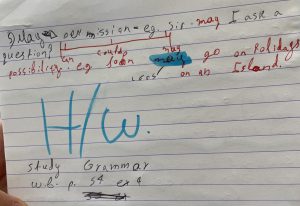 May permission - eg. Sir. may I ask a
question?
can could may
possibility. e.g Loan may go on Holidays
less on an Island.
H/W.
study Grammar
w.b. p. 54 ex 4